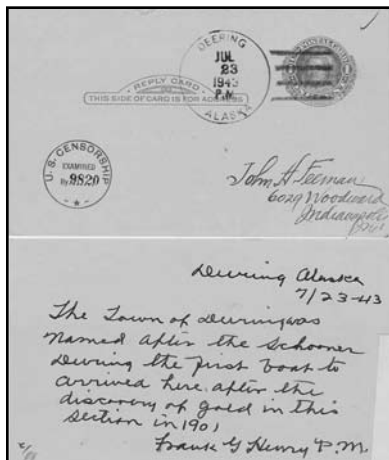 DEERING
JUL
23
1943
P.M.
ALASKA
REPLY CARD
THIS SIDE OF CARD IS FOR ADDRESS
U.S. CENSORSHIP
EXAMINED
By 9820
John H. Feeman
6029 Woodward
Indianapolis
Deering Alaska
7/23-43
The Town of Deering was
named after the Schooner
Deering the first boat to
arrived here after the
discovery of gold in this
section in 1901
Frank G Henry P.M.